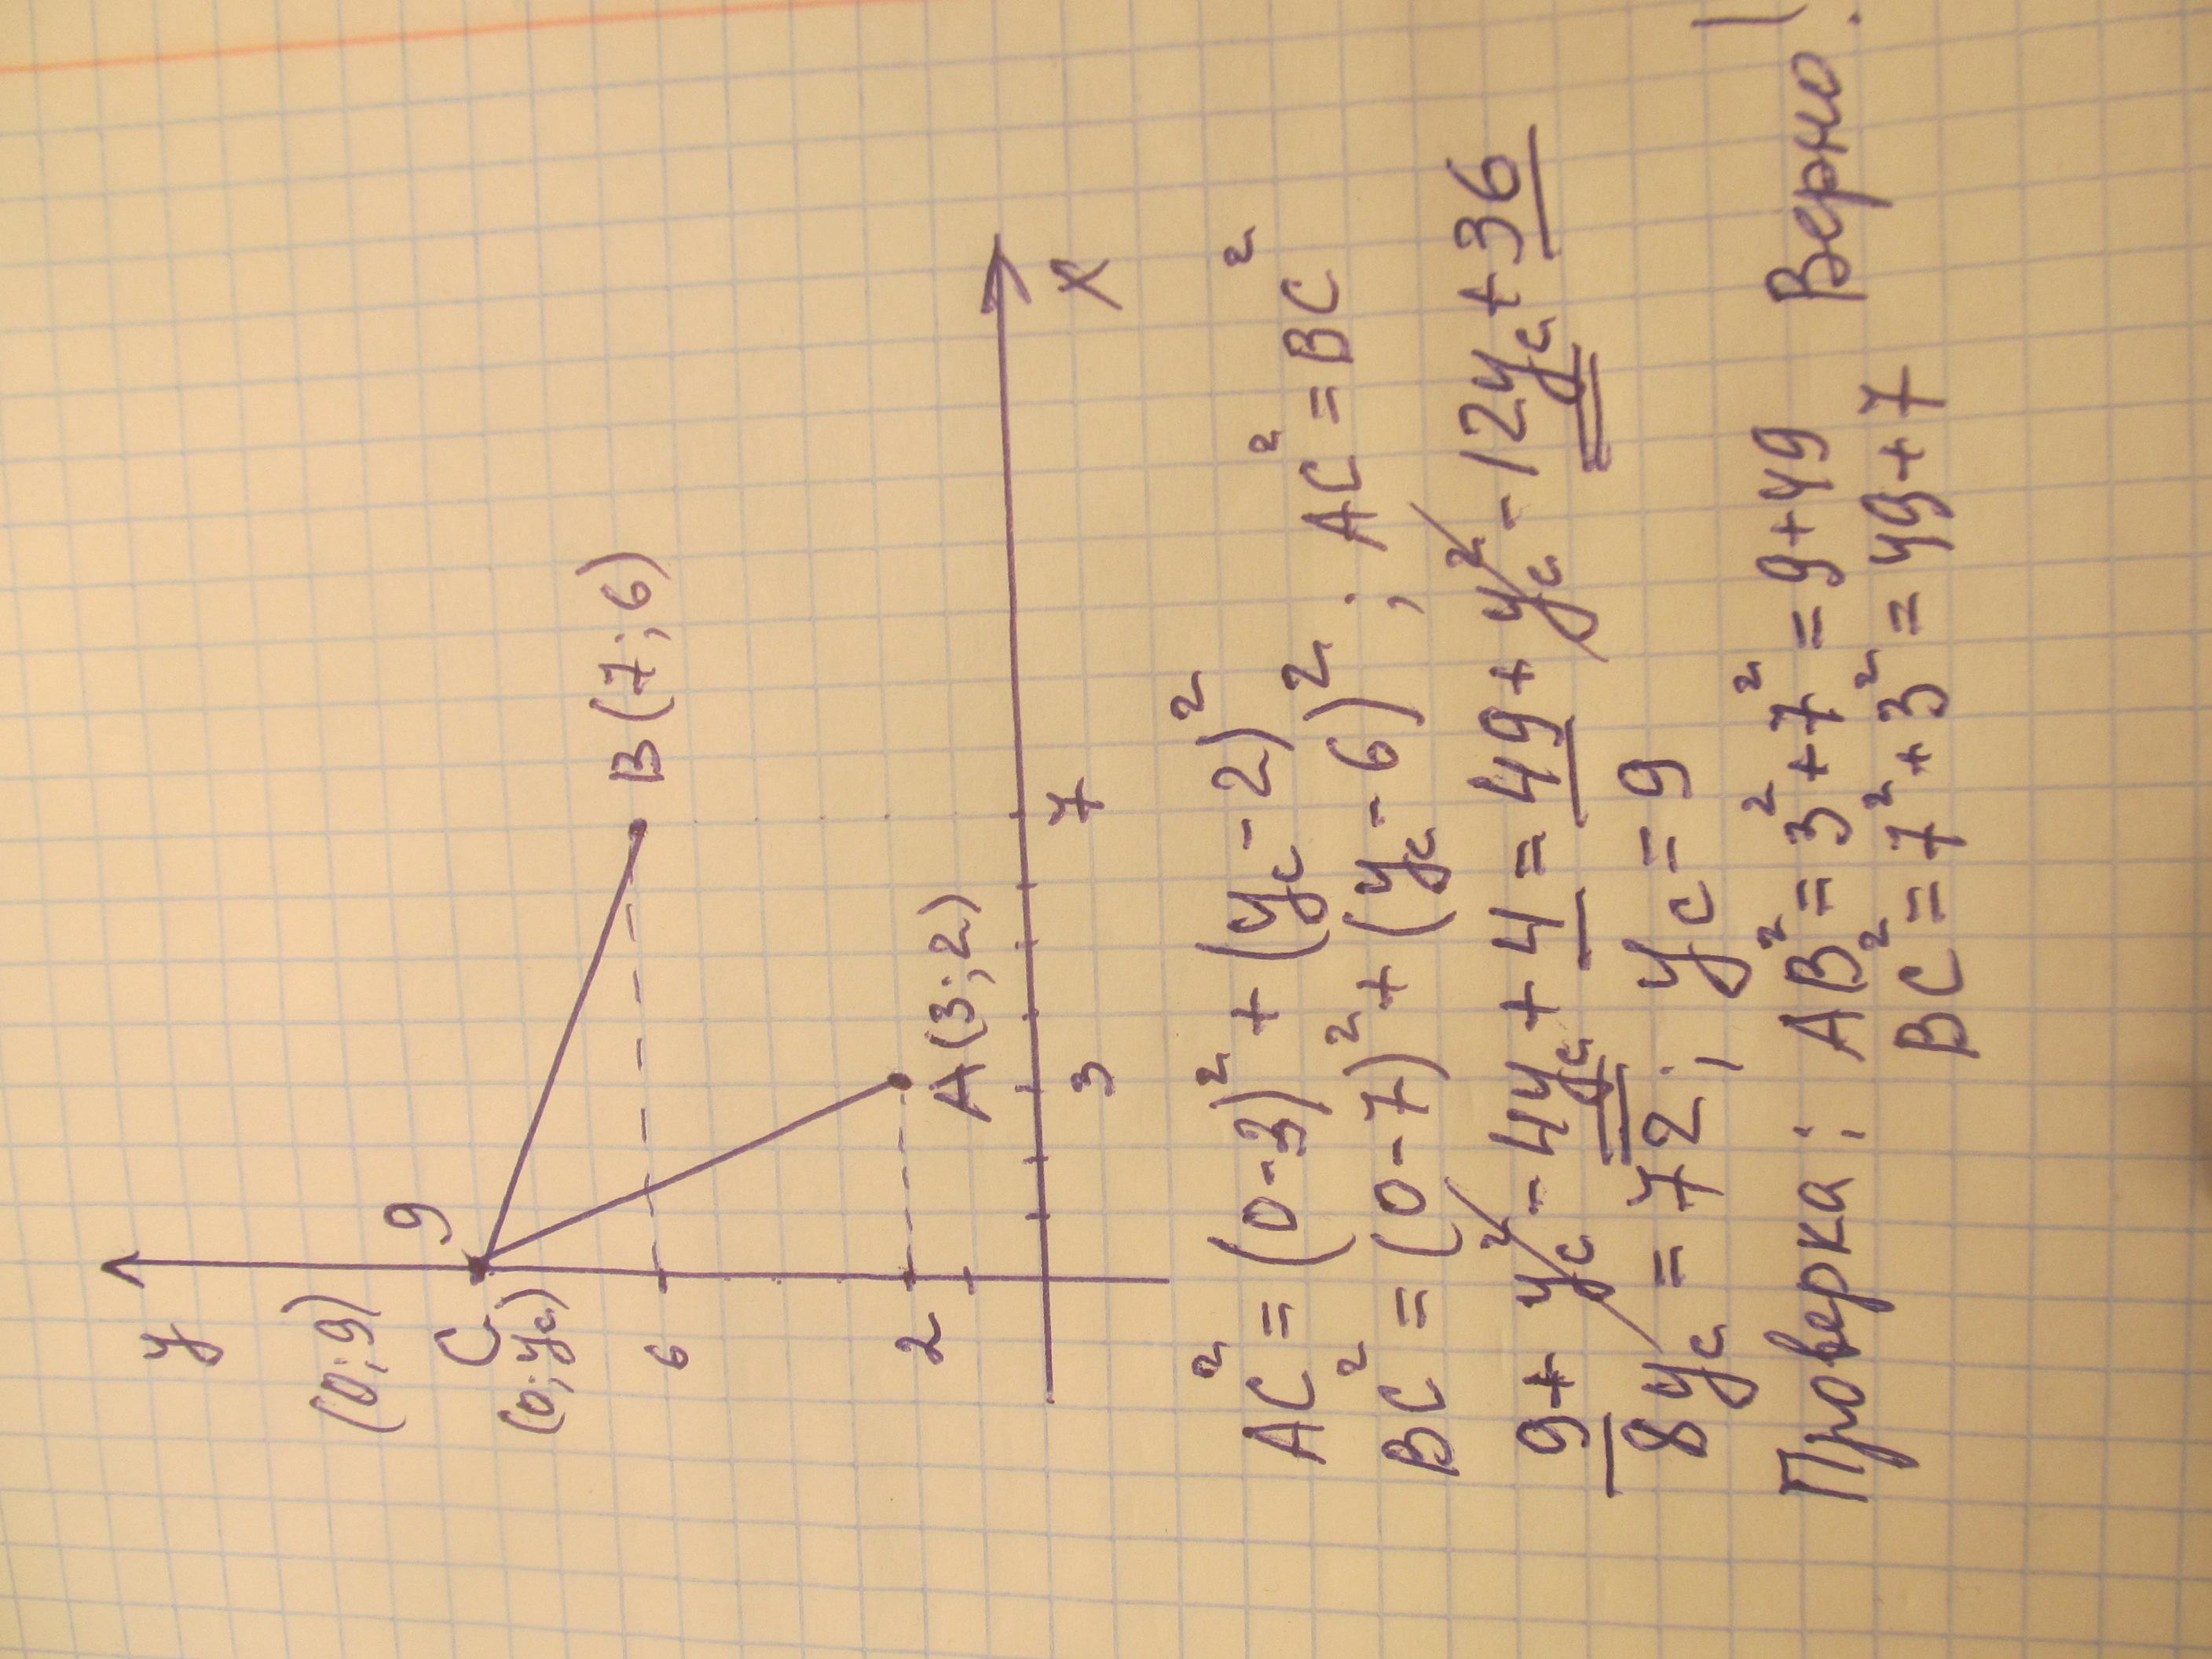 y
(0; 9)
9
C
(0; yc)
B (7; 6)
6
A (3; 2)
2
3
7
x
AC² = (0-3)² + (yc-2)²
BC² = (0-7)² + (yc-6)² ; AC² = BC²
9 + yc² - 4yc + 4 = 49 + yc² - 12yc + 36
8yc = 72 ; yc = 9
Проверка: AB² = 3² + 7² = 9 + 49
BC² = 7² + 3² = 49 + 7
Верно!